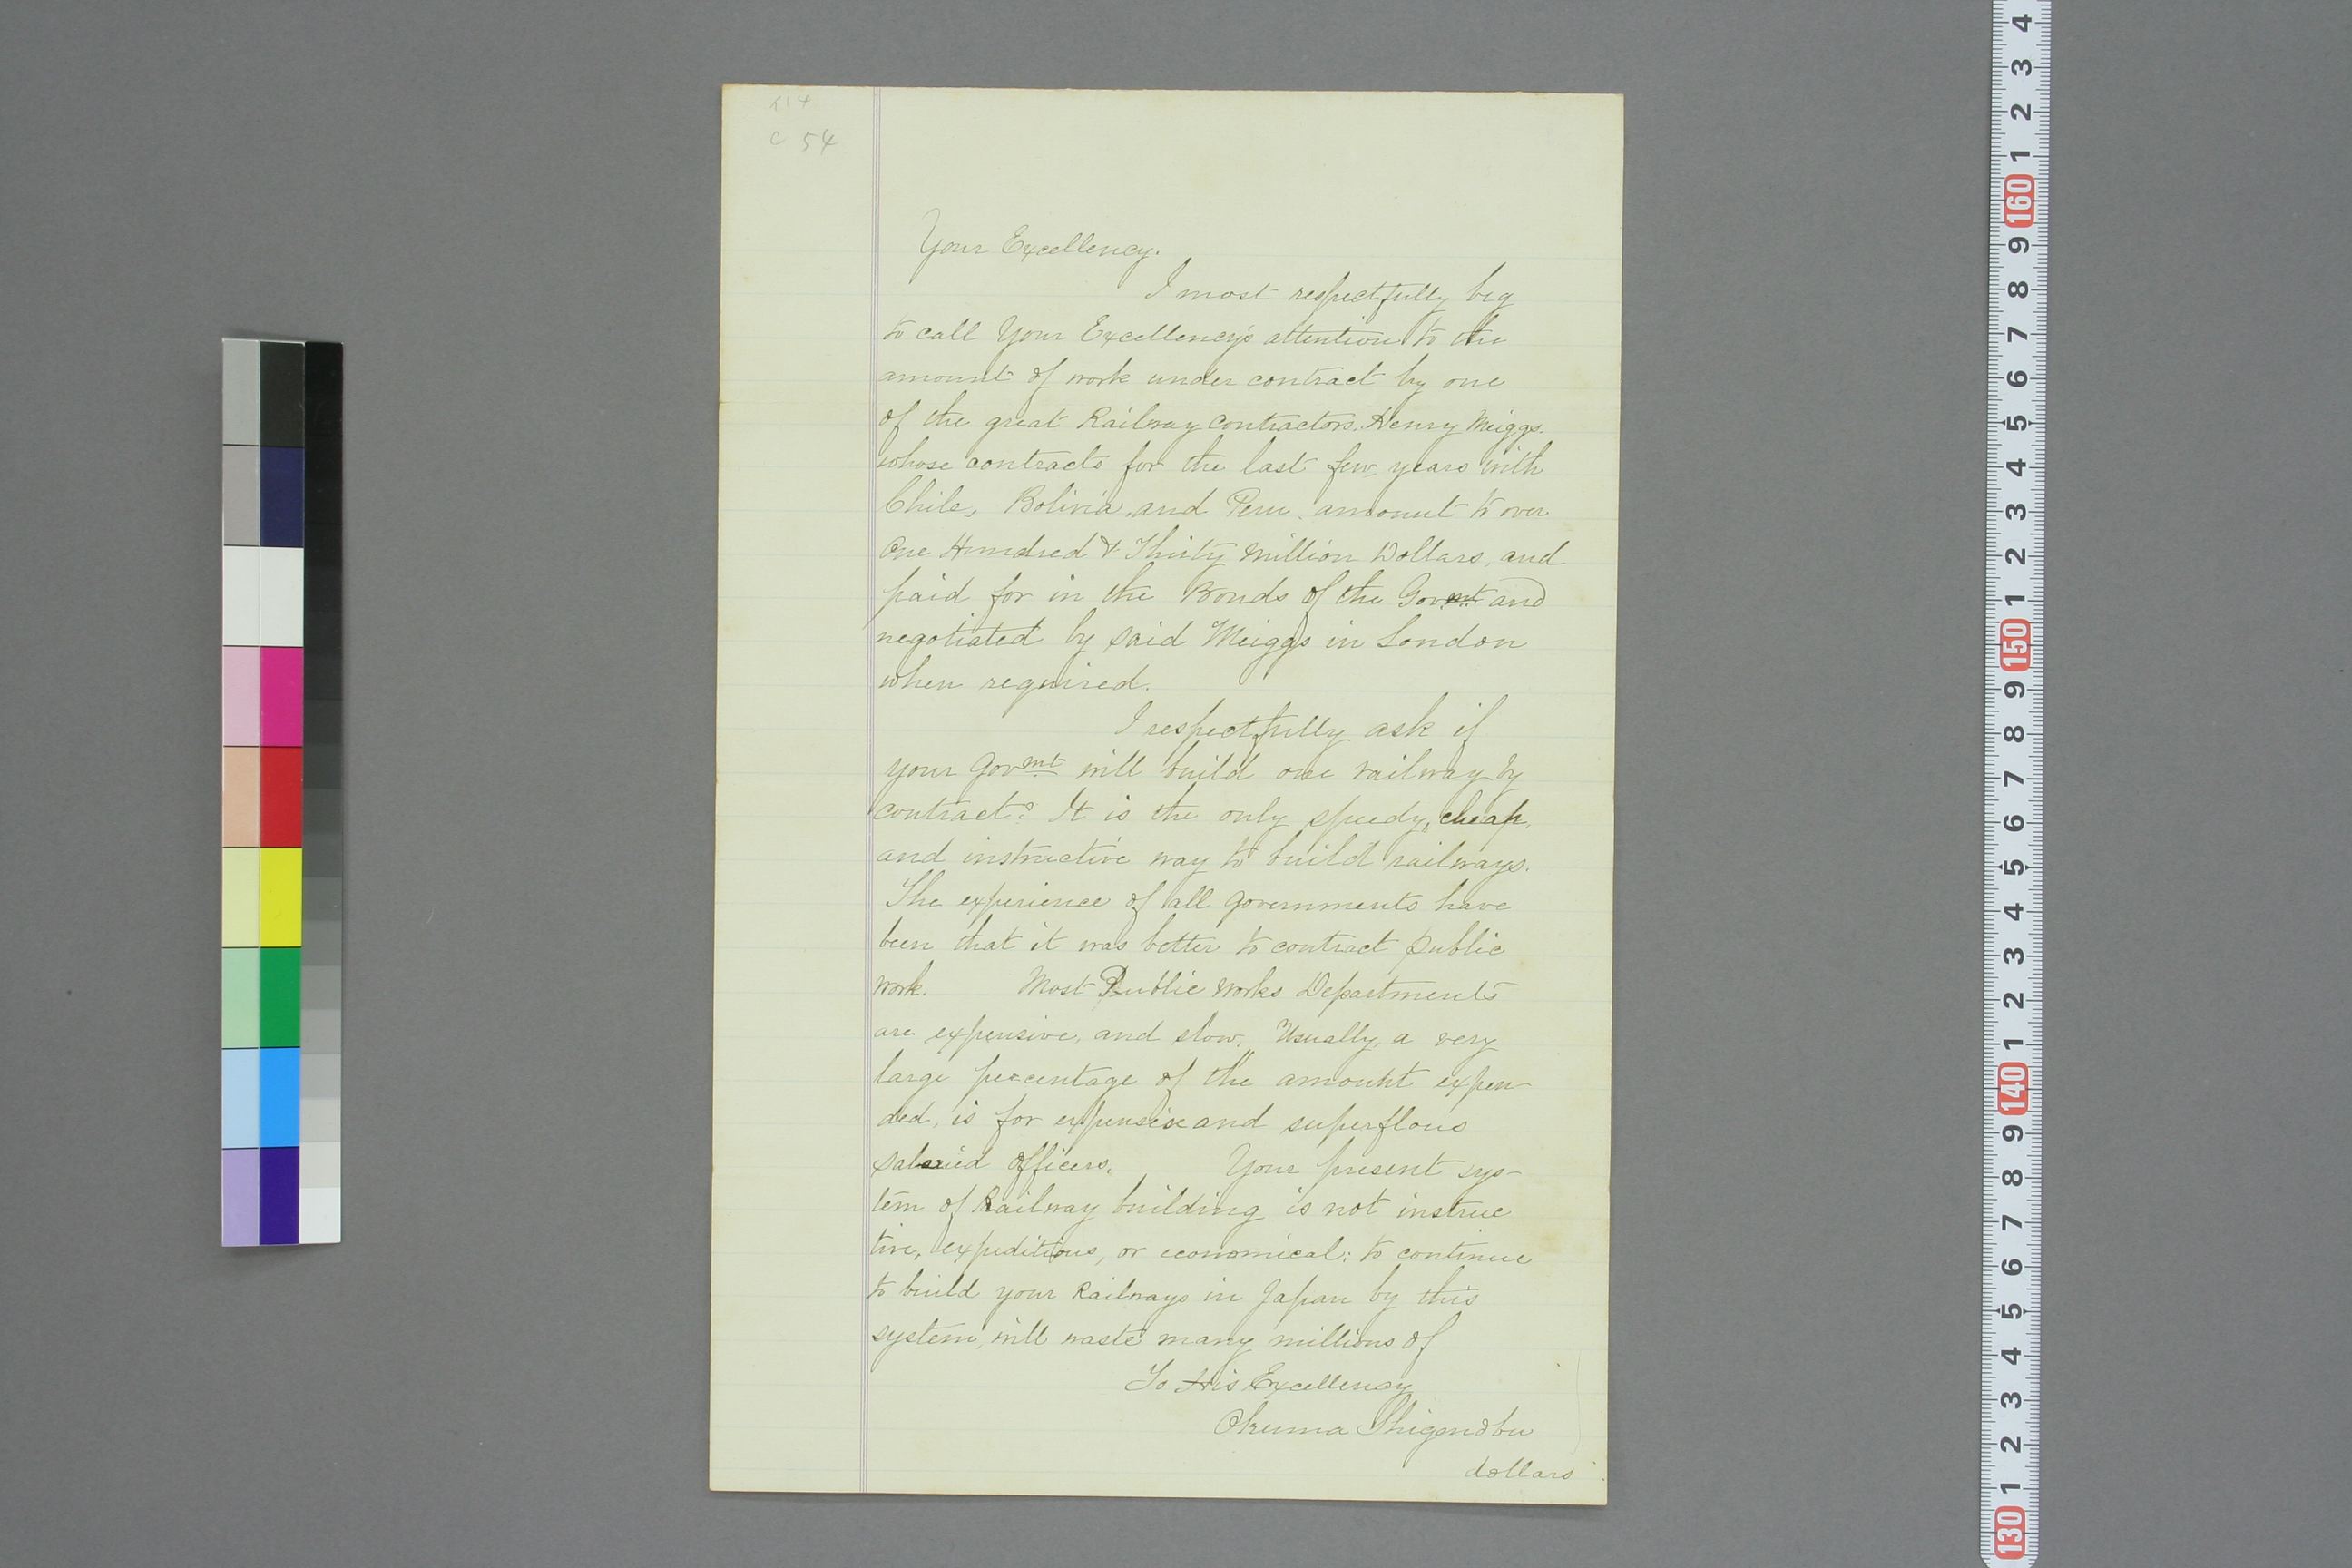 C 54
Your Excellency.
I most respectfully beg
to call Your Excellency's attention to the
amount of work under contract by one
of the great Railway contractors. Henry Meiggs.
whose contracts for the last few years with
Chile, Bolivia, and Peru, amount to over
One Hundred & Thirty Million Dollars, and
paid for in the Bonds of the Govmt and
negotiated by said Meiggs in London
when required.
I respectfully ask if
your Govmt will build one railway by
contract? It is the only speedy, cheap,
and instructive way to build railways.
The experience of all governments have
been that it was better to contract public
work. Most Public Works Departments
are expensive, and slow. Usually, a very
large percentage of the amount expen-
ded, is for expensive and superflous
salaried officers. Your present sys-
tem of Railway building is not instruc
tive, expeditious, or economical: to continue
to build your Railways in Japan by this
system, will waste many millions of
To His Excellency
Okuma Shigenobu
dollars
4 3 2 1 160 9 8 7 6 5 4 3 2 1 150 9 8 7 6 5 4 3 2 1 140 9 8 7 6 5 4 3 2 1 130